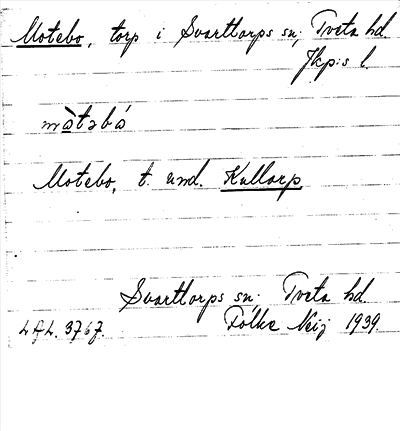 Motebo, torp i Svarttorps sn, Tveta hd.
Jkp:s l.
Motebo, t. und. Kullarp.
Svarttorps sn. Tveta hd.
Folke Neij 1939.